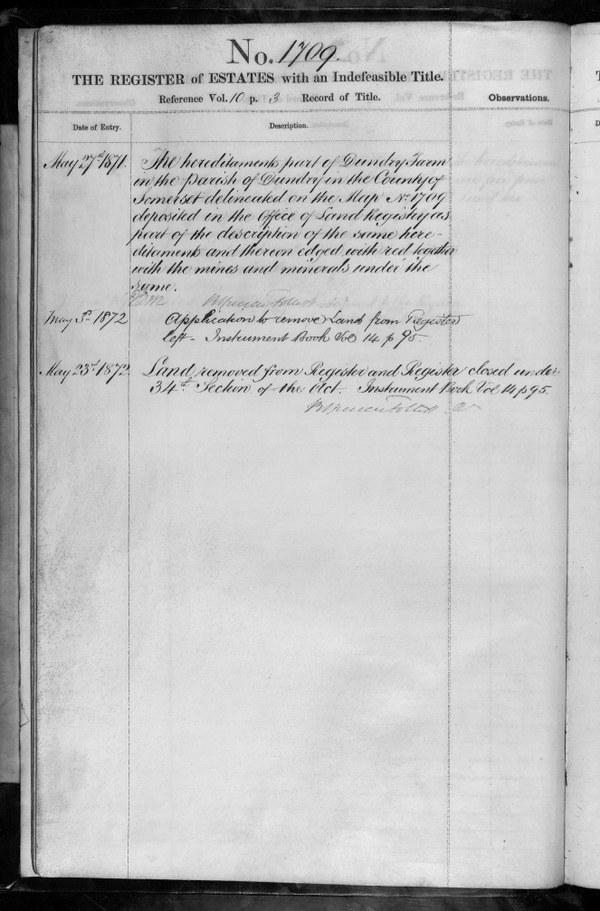 No. 1709.
THE REGISTER of ESTATES with an Indefeasible Title.
Reference Vol. 10 p. 3 Record of Title.
Observations.
Date of Entry.
Description.
May 27th 1871.
The hereditaments part of Dundry Farm
in the Parish of Dundry in the County of
Somerset delineated on the Map No. 1709
deposited in the Office of Land Registry as
part of the description of the same here-
ditaments and thereon edged with red together
with the mines and minerals under the
same.
May 3rd 1872
Application to remove Land from Register
left - Instrument Book Vol 14 p 95.
May 23rd 1872.
Land removed from Register and Register closed under
34th Section of the Act. Instrument Book Vol 14 p 95.